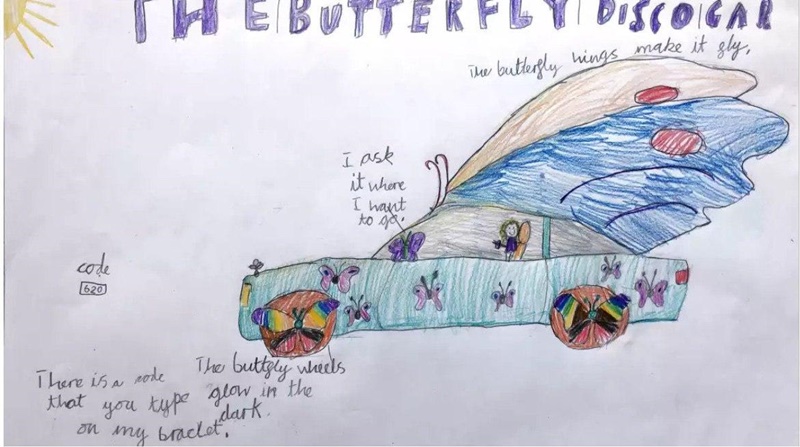 THE BUTTERFLY DISCO CAR
The butterfly wings make it fly.
I ask
it where
I want
to go.
code
620
There is a code
that you type
on my braclet.
The buttfly wheels
glow in the
dark.